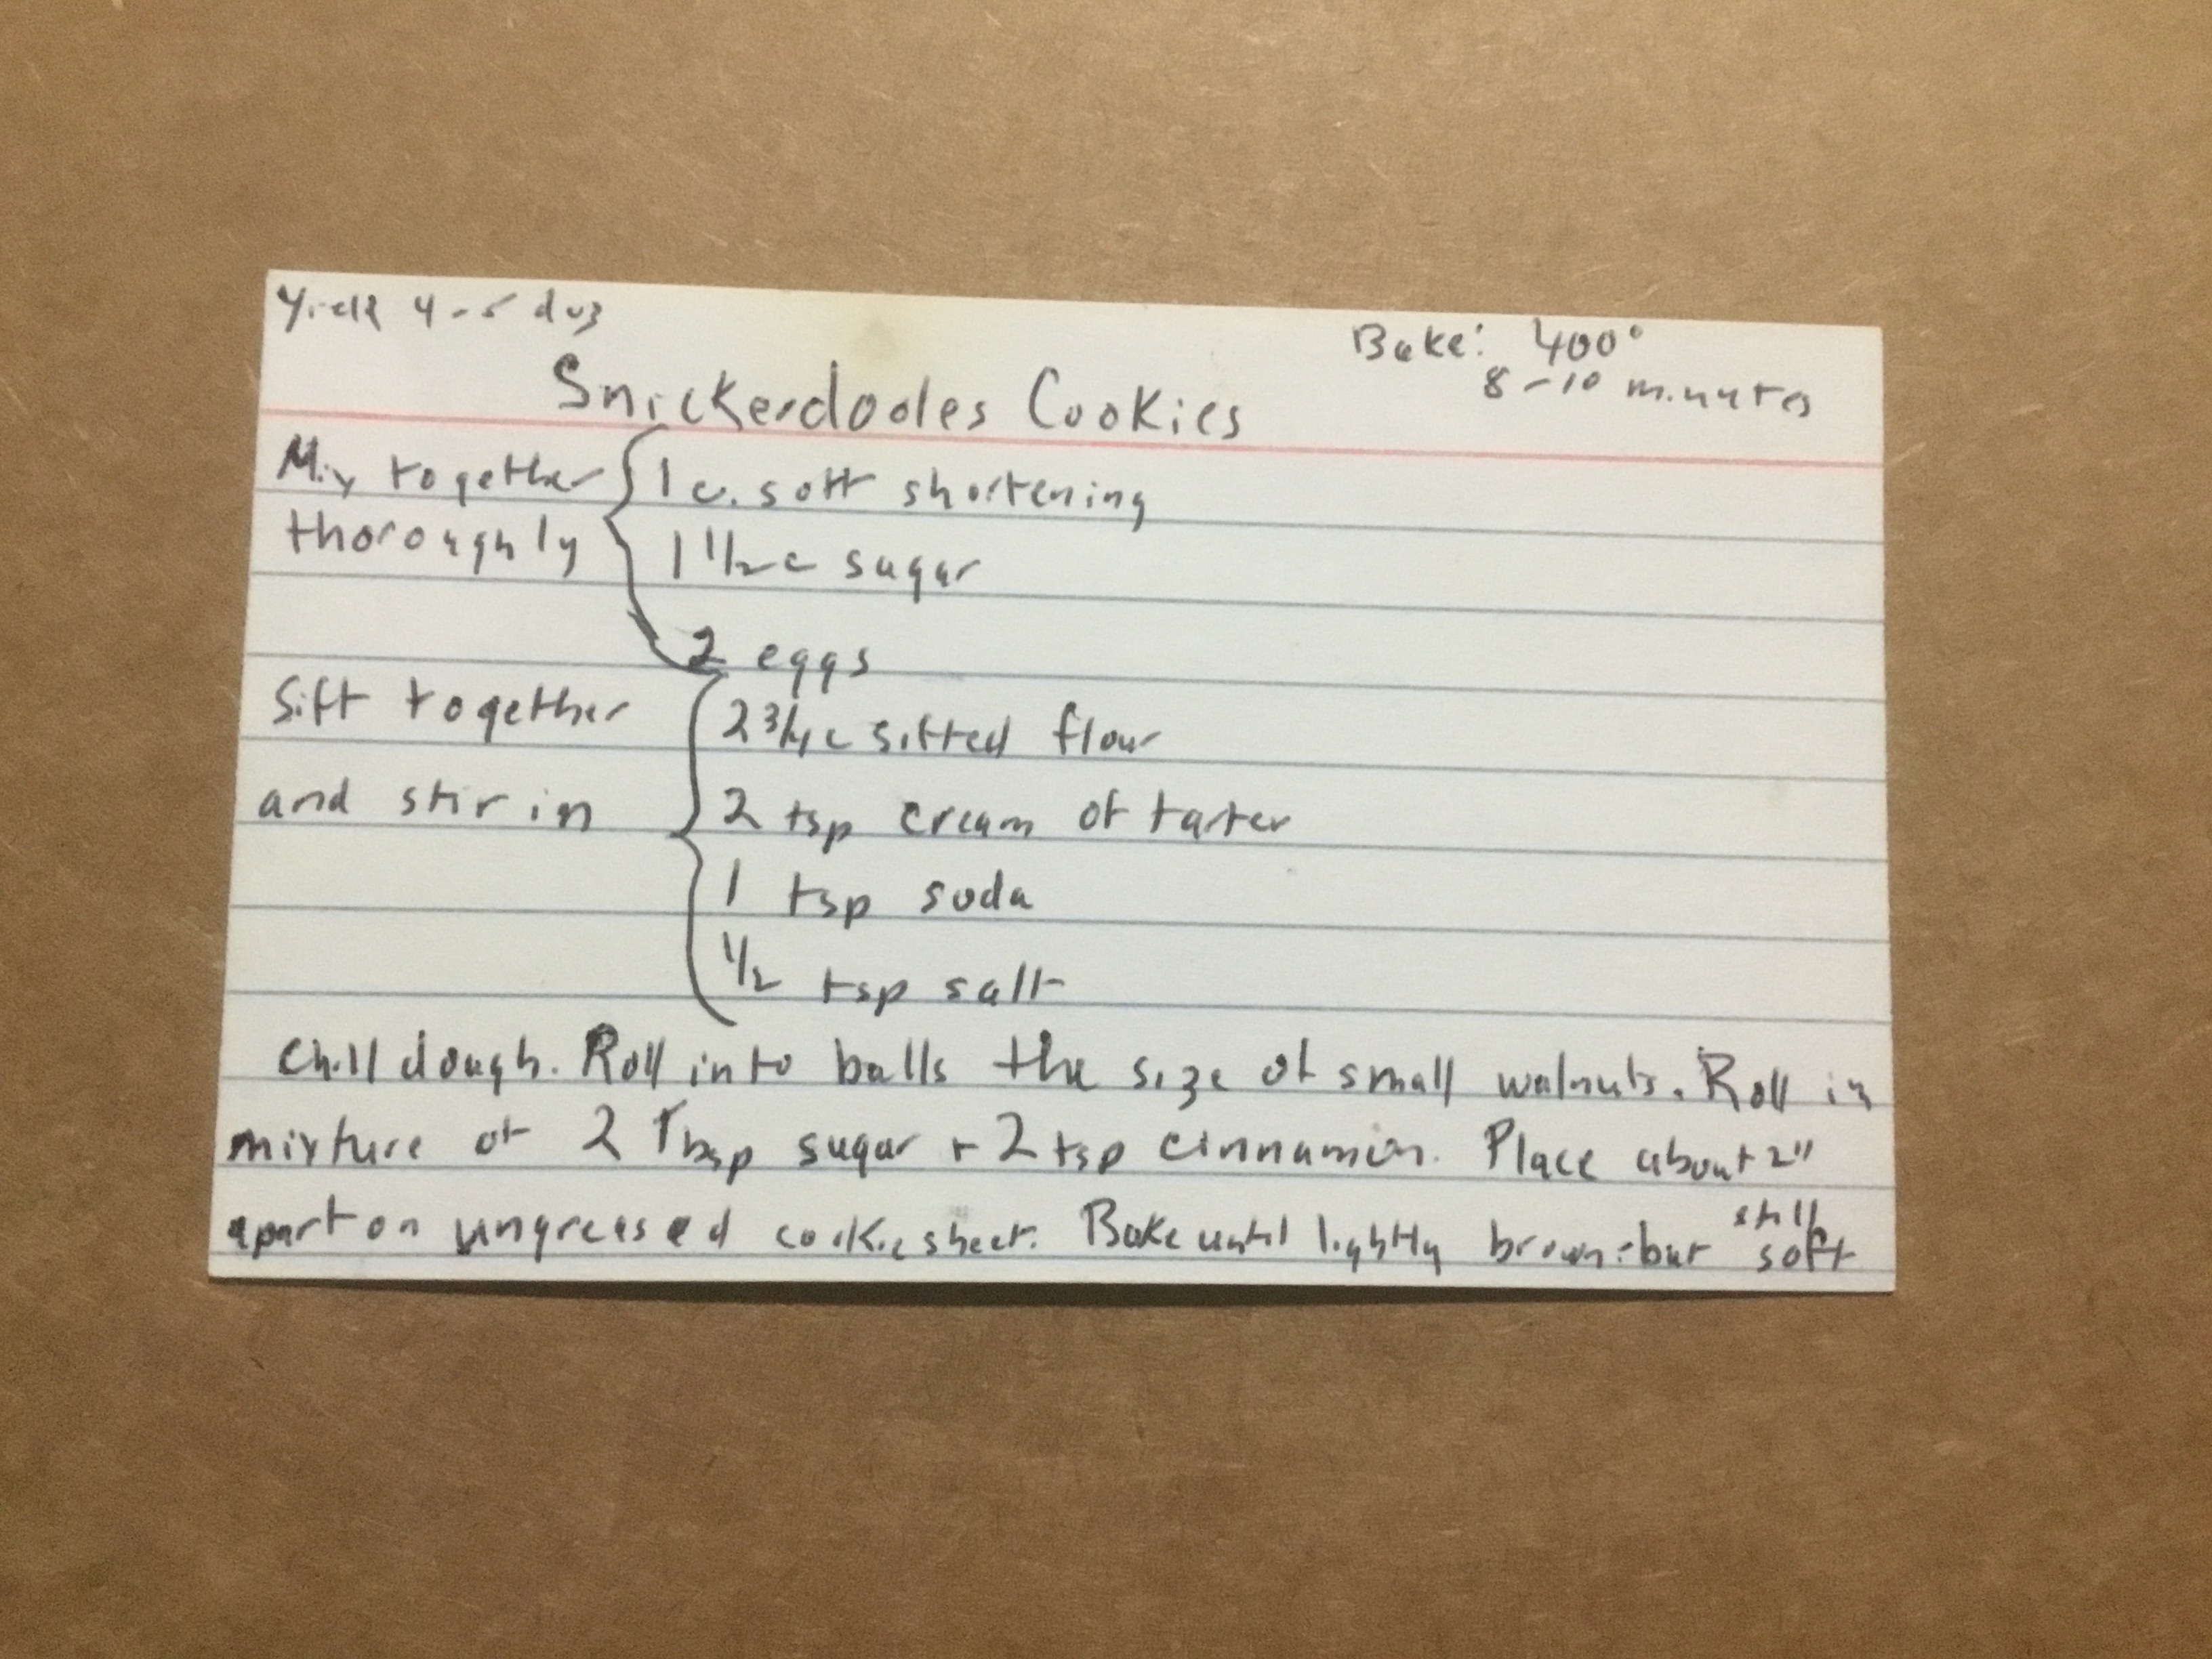 Yield 4-5 doz
Bake: 400°
8-10 minutes
Snickerdooles Cookies
Mix together { 1 c. soft shortening
thoroughly 1 1/2 c sugar
2 eggs
Sift together { 2 3/4 c sifted flour
and stir in 2 tsp cream of tarter
1 tsp soda
1/2 tsp salt
Chill dough. Roll into balls the size of small walnuts. Roll in
mixture of 2 Tbsp sugar + 2 tsp cinnamon. Place about 2"
apart on ungreased cookie sheet. Bake until lightly brown - but still soft